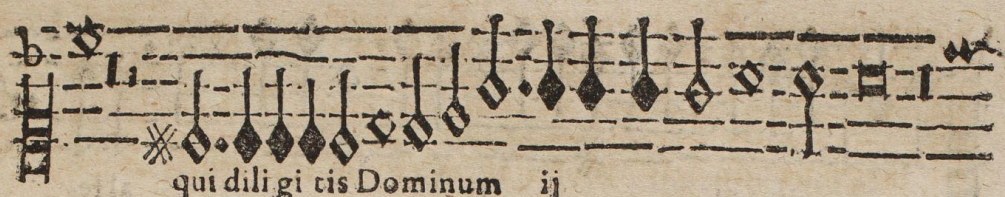 qui diligi tis Dominum ij